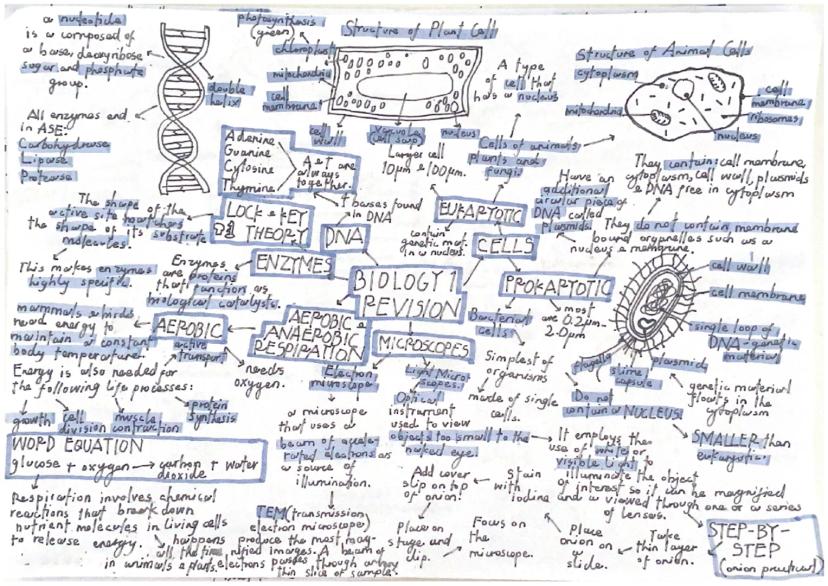 a nucleotide
is a composed of
a base, deoxyribose
sugar and phosphate
group.
double
helix
All enzymes end
in ASE:
Carbohydrase
Lipase
Protease
photosynthesis
(green)
chloroplast
mitochondria
cell
membrane
Structure of Plant Cells
cell
wall
vacuole
(cell sap)
nucleus
Larger cell
10µm & 100µm.
A type
of cell that
has a nucleus
Cells of animals
plants and
fungi.
Structure of Animal Cells
cytoplasm
mitochondria
cell
membrane
ribosomes
nucleus
Adenine
Guanine
Cytosine
Thymine
A & T are
always
together.
4 bases found
in DNA
The shape of the
active site matches
the shape of its substrate
molecules.
LOCK & KEY
THEORY
DNA
ENZYMES
This makes enzymes
highly specific.
Enzymes
are proteins
that function as
biological catalysts.
EUKARYOTIC
contain
genetic mat.
in a nucleus.
CELLS
PROKARYOTIC
Have an
additional
circular piece of
DNA called
plasmids.
They contain: cell membrane,
cytoplasm, cell wall, plasmids
& DNA free in cytoplasm
They do not contain membrane
bound organelles such as a
nucleus & membrane.
BIOLOGY 1
REVISION
mammals & birds
need energy to
maintain a constant
body temperature.
AEROBIC
active
transport
AEROBIC &
ANAEROBIC
RESPIRATION
needs
oxygen.
MICROSCOPES
Bacterial
cells.
most
are 0.2µm-
2.0µm
cell wall
cell membrane
single loop of
DNA - genetic
material
plasmids
flagella
slime
capsule
genetic material
floats in the
cytoplasm
Do not
contain a NUCLEUS!
SMALLER than
eukaryotic
Simplest of
organisms
made of single
cells.
Energy is also needed for
the following life processes:
growth
cell
division
muscle
contraction
protein
synthesis
WORD EQUATION
glucose + oxygen → carbon dioxide + water
Respiration involves chemical
reactions that break down
nutrient molecules in living cells
to release energy.
happens
all the time
in animals & plants.
Electron
microscope
a microscope
that uses a
beam of accelerated electrons as
a source of
illumination.
TEM (transmission
electron microscope)
produce the most magnified images. A beam of
electrons passes through a very
thin slice of sample.
Light Microscopes.
Optical
instrument
used to view
objects too small to the
naked eye!
It employs the
use of white or
visible light to
illuminate the object
of interest so it can be magnified
and a viewed through one or a series
of lenses.
STEP-BY-
STEP
(onion practical)
Take
thin layer
of onion.
Place
onion on
a slide.
Stain
with
iodine
Add cover
slip on top
of onion!
Place on
stage and
clip.
Focus on
the
microscope.